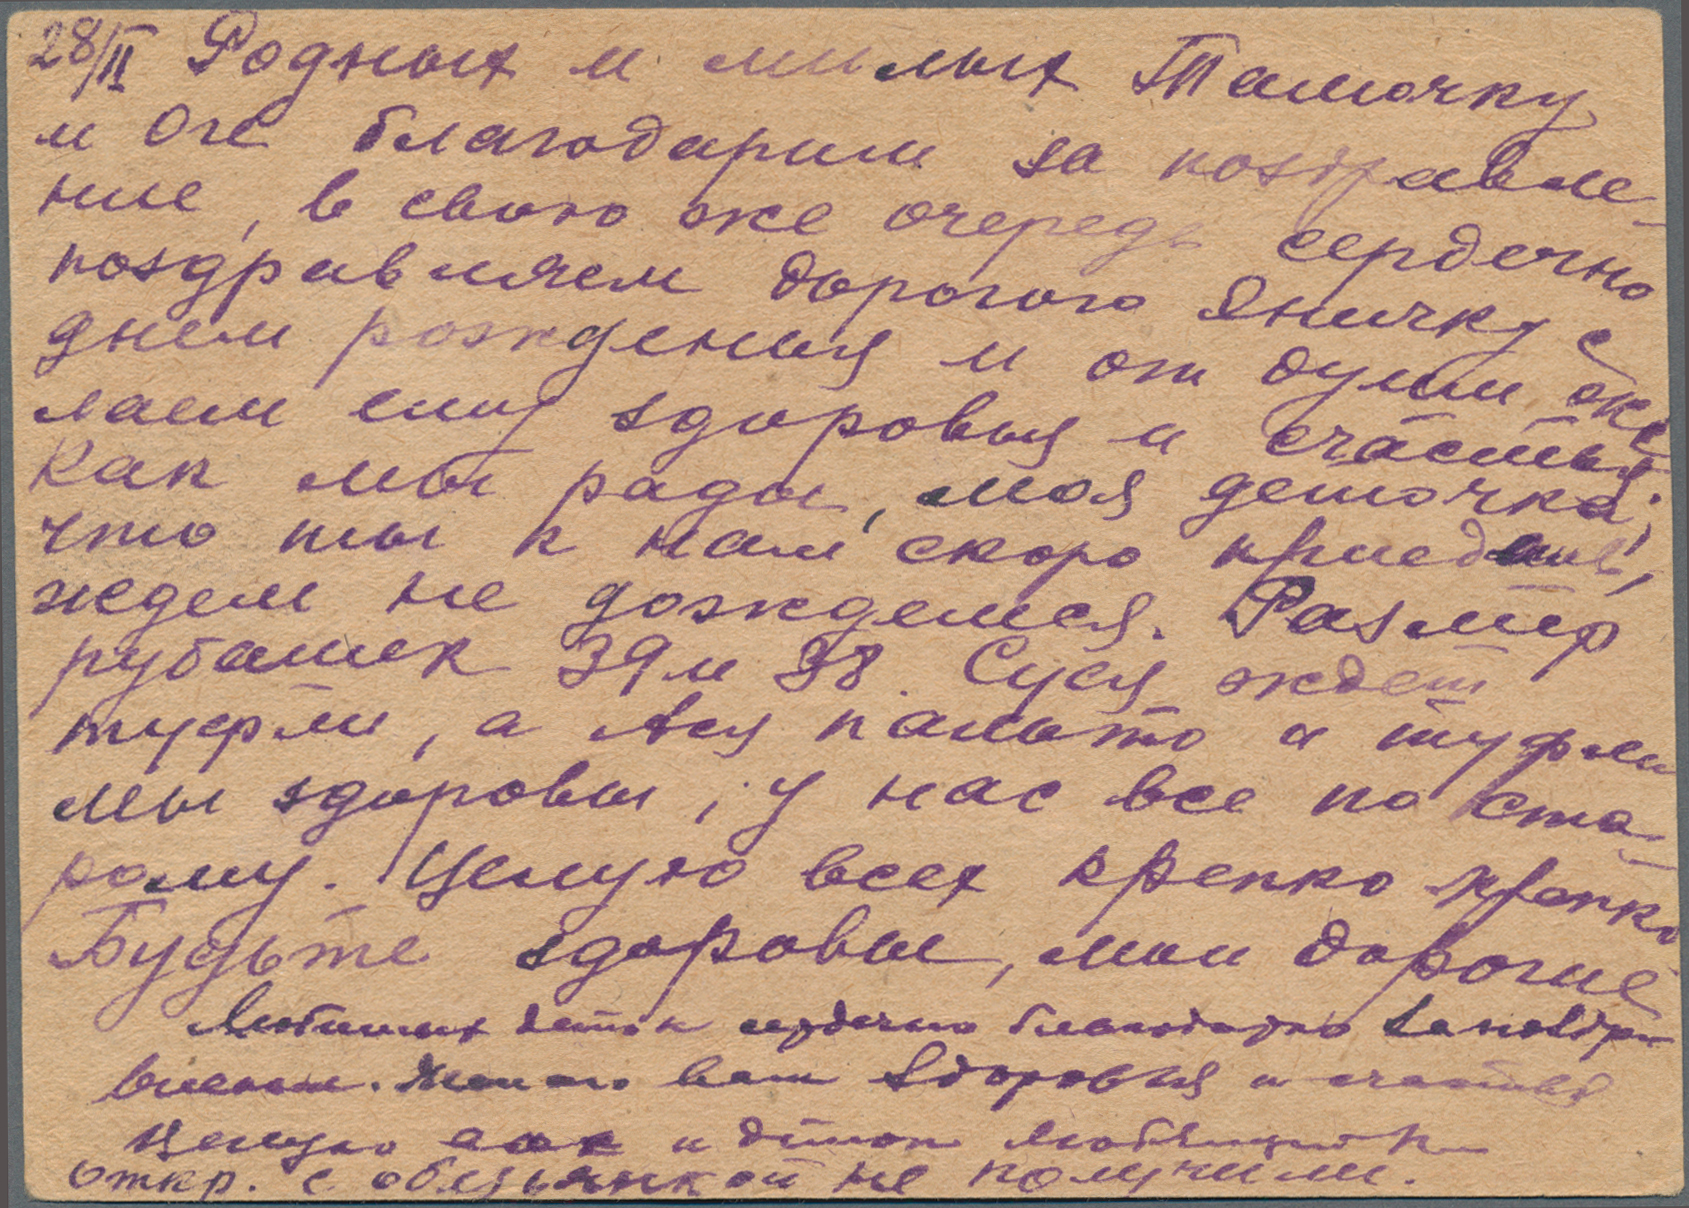 28/II Родных и милых Тамочку
и Оле благодарим за поздравле-
ние, в свою же очередь сердечно
поздравляем дорогого Яничку с
днем рождения и от души же
лаем ему здоровья и счастья.
Как мы рады, моя деточка,
что ты к нам скоро приедешь,
ждем не дождемся. Размер
рубашек 39 и 38. Суся ждет
туфли, а Ася пальто и туфли
мы здоровы, у нас все по ста-
рому. Целую всех крепко крепко
Будьте здоровы, мои дорогие
Любимых деток сердечно благодарю за поздра
вления. Желаю вам здоровья и счастья
Целую вас и деток
откр. с обезьянкой не получили.